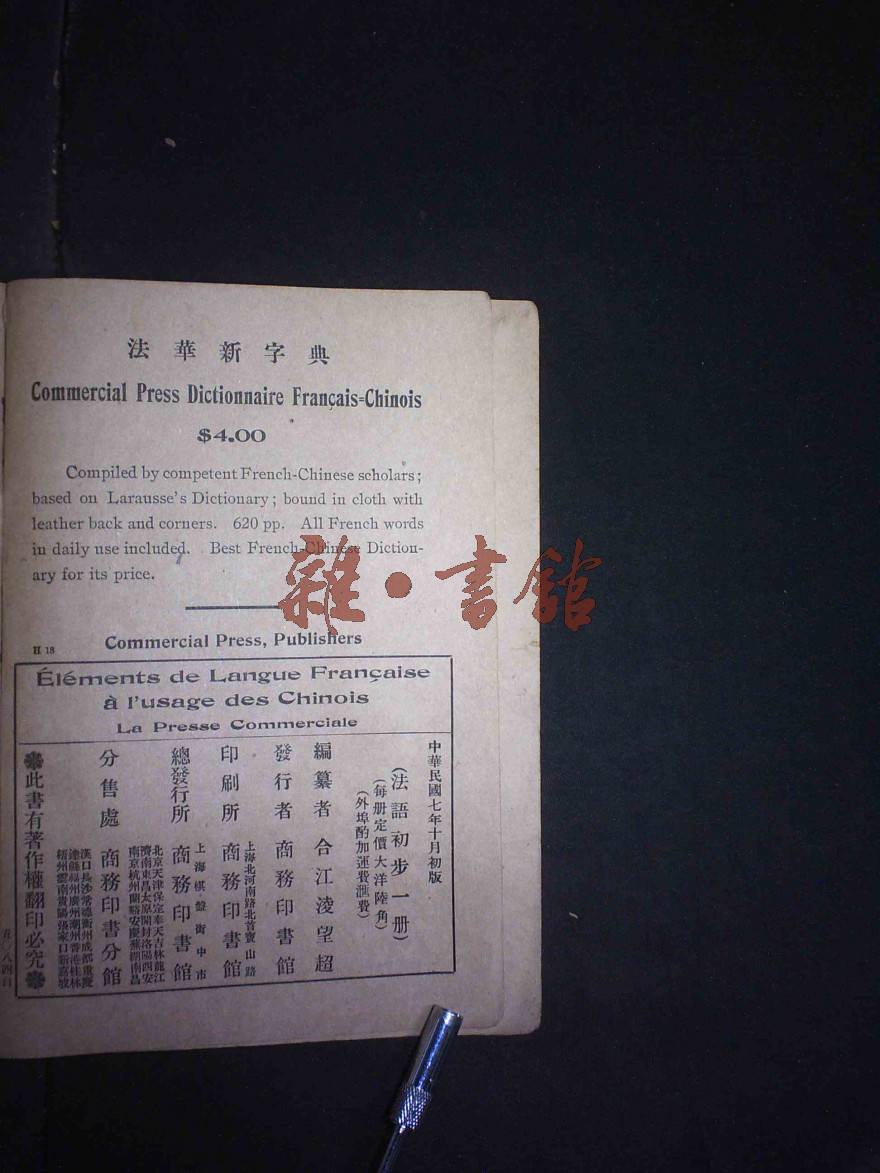 法華新字典
Commercial Press Dictionnaire Français=Chinois
$4.00
Compiled by competent French-Chinese scholars;
based on Larausse's Dictionary; bound in cloth with
leather back and corners. 620 pp. All French words
in daily use included. Best French-Chinese Diction-
ary for its price.
雜·書館
Commercial Press, Publishers
H 18
Éléments de Langue Française
à l'usage des Chinois
La Presse Commerciale
中華民國七年十月初版
(法語初步一册)
(每册定價大洋陸角)
(外埠酌加運費滙費)
編纂者 合江淩望超
發行者 商務印書館
印刷所 上海北河南路北首寶山路 商務印書館
總發行所 上海棋盤街中市 商務印書館
分售處 北京天津保定奉天吉林龍江
濟南東昌太原開封洛陽西安
南京杭州蘭谿安慶蕪湖南昌
商務印書分館
漢口長沙常德衡州成都重慶
達縣福州廣州潮州香港桂林
梧州雲南貴陽張家口新嘉坡
此書有著作權翻印必究